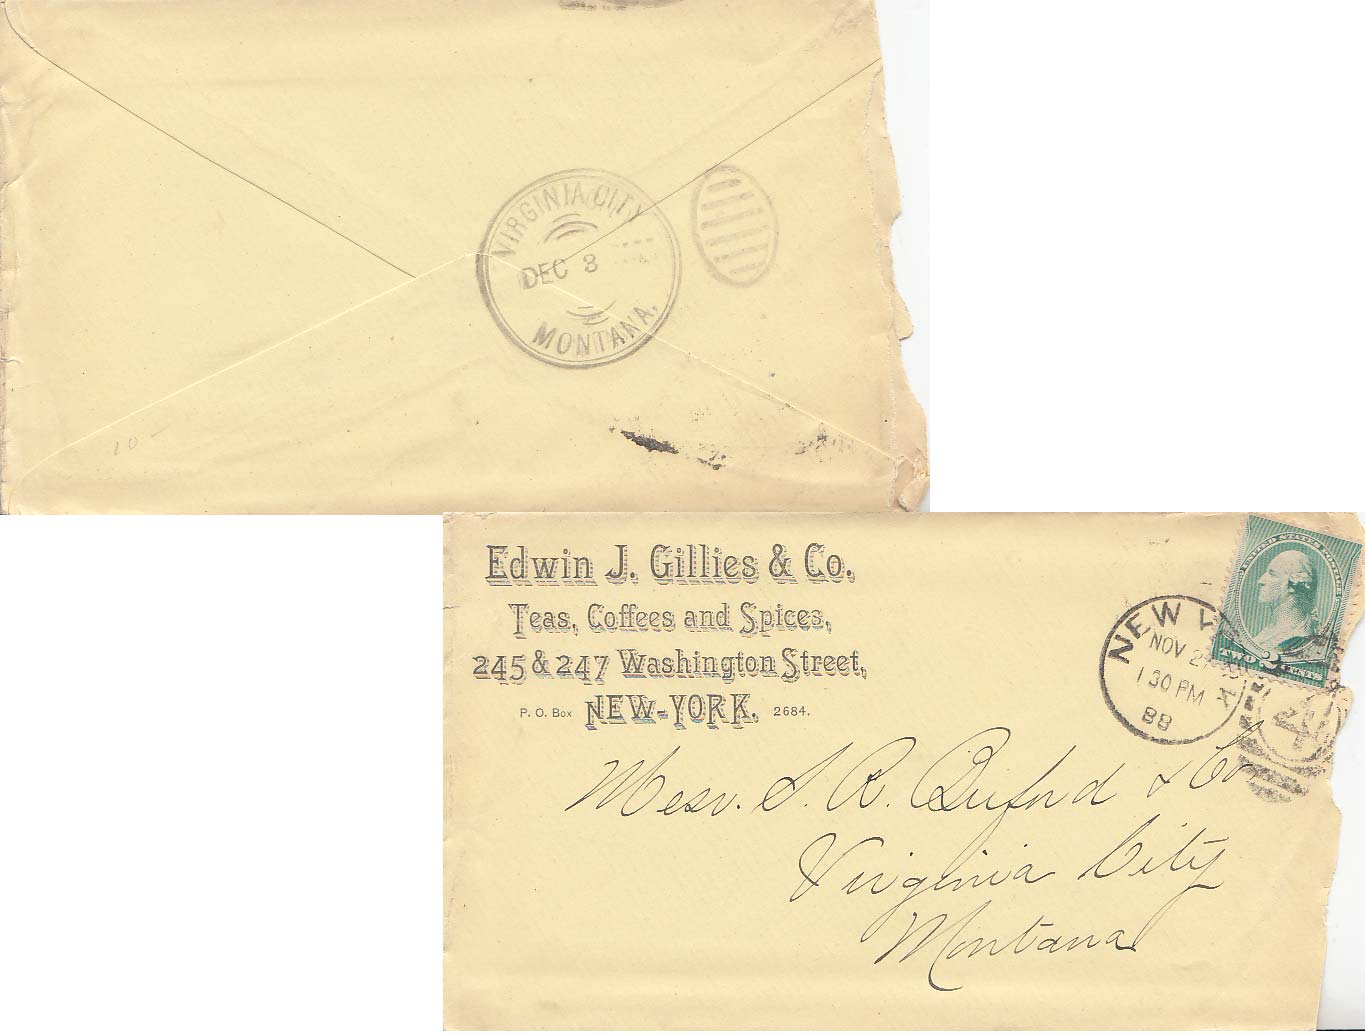 VIRGINIA CITY
DEC 3
MONTANA.
10 -
Edwin J. Gillies & Co.
Teas, Coffees and Spices,
245 & 247 Washington Street,
P. O. Box NEW-YORK. 2684.
UNITED STATES POSTAGE
TWO 2 CENTS
NEW Y
NOV 27
1 30 PM
88
4
Messr. S. R. Buford & Co
Virginia City
Montana